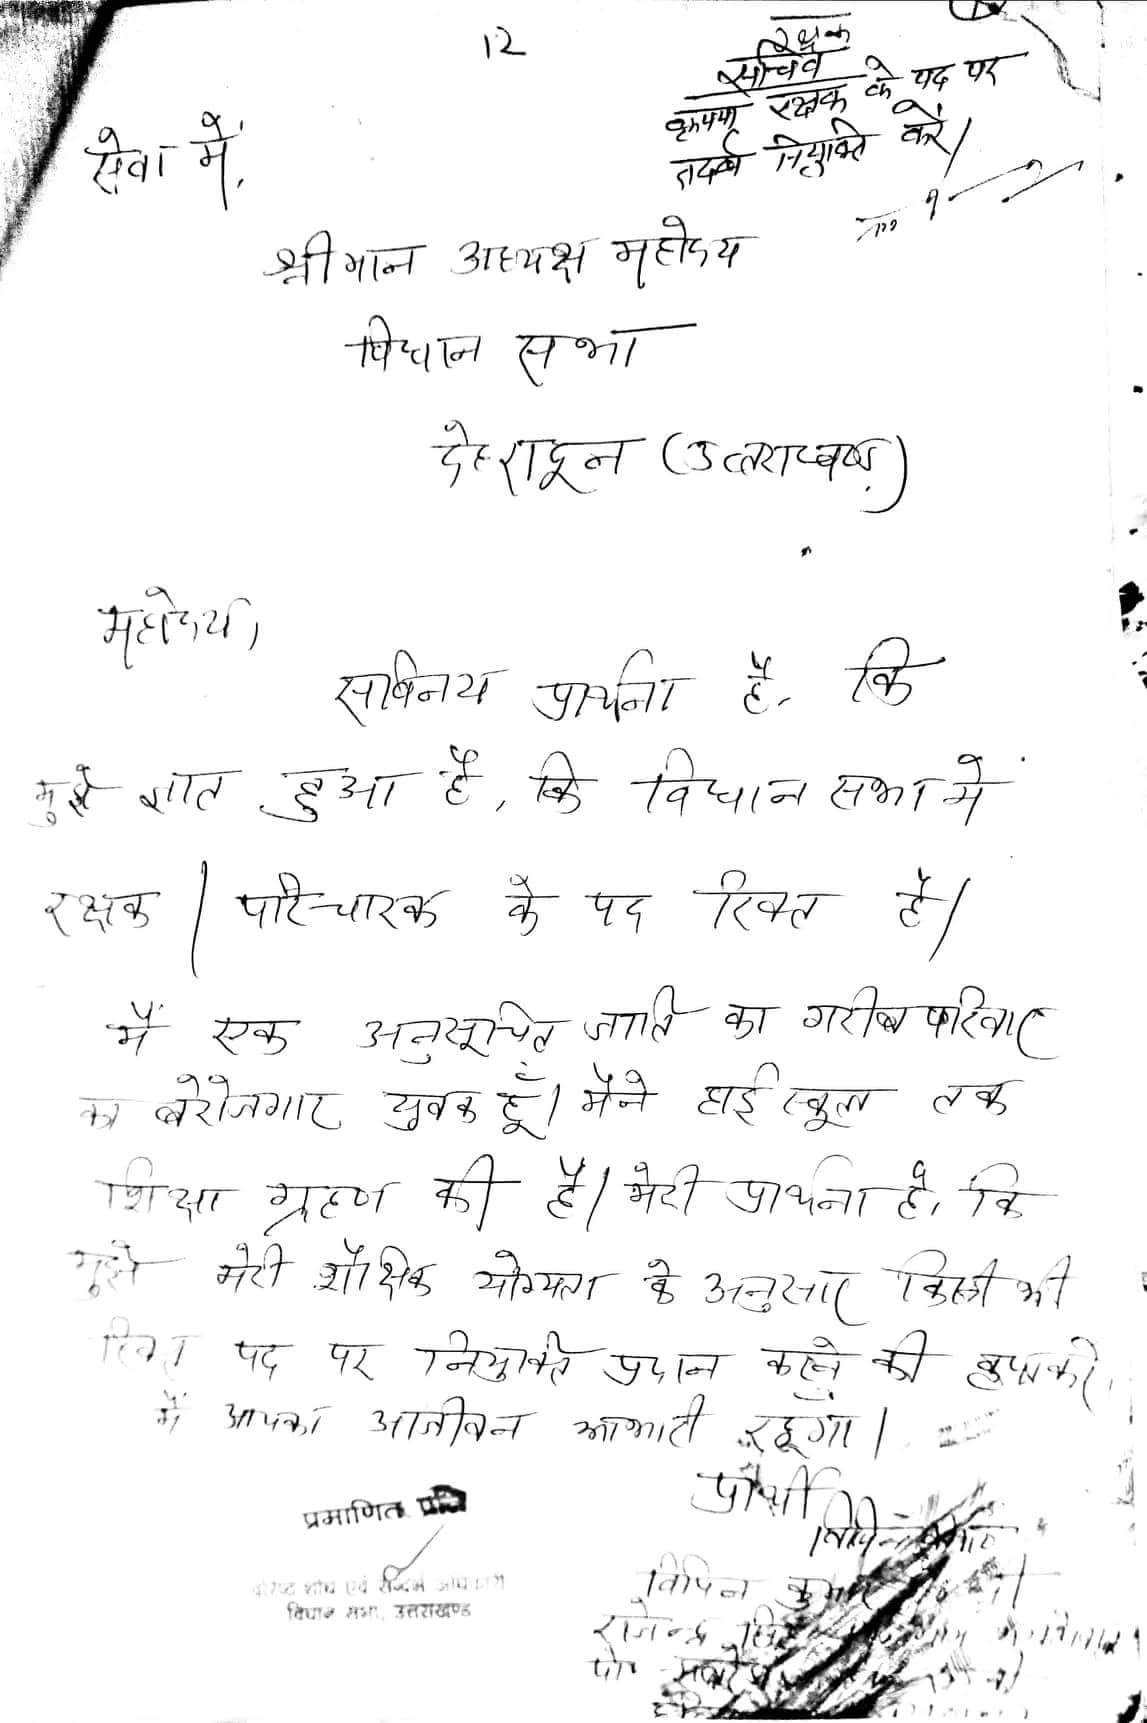 12
रक्षक
सचिव
कृपया रक्षक के पद पर
तदर्थ नियुक्ति करें।
सेवा में,
श्रीमान अध्यक्ष महोदय
विधान सभा
देहरादून (उत्तराखण्ड)
महोदय,
सविनय प्रार्थना है, कि
मुझे ज्ञात हुआ है, कि विधान सभा में
रक्षक / परिचारक के पद रिक्त है।
मैं एक अनुसूचित जाति का गरीब परिवार
का बेरोजगार युवक हूँ। मैंने हाई स्कूल तक
शिक्षा ग्रहण की है। मेरी प्रार्थना है, कि
मुझे मेरी शैक्षिक योग्यता के अनुसार किसी भी
रिक्त पद पर नियुक्ति प्रदान करने की कृपा करें,
मैं आपका आजीवन आभारी रहूंगा।
प्रार्थी
विपिन कुमार
प्रमाणित प्रति
वरिष्ठ शोध एवं सन्दर्भ अधिकारी
विधान सभा, उत्तराखण्ड
विपिन कुमार
राजेन्द्र